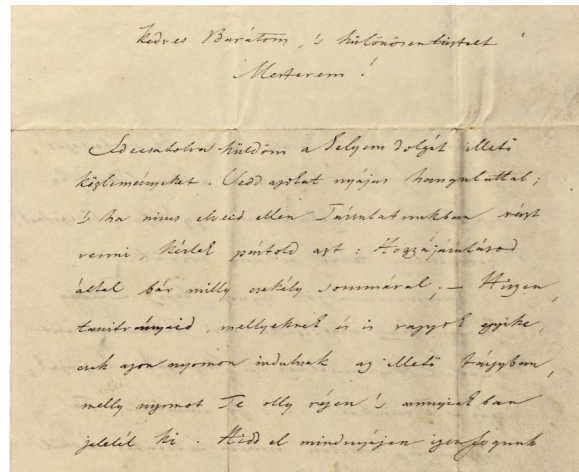 Kedves Barátom, 's különösen tisztelt
Mesterem!
Idecsatolva küldöm a Selyem dolgát illető
közleményeket. Vedd azokat nyájas hangulattal;
's ha nincs elveid ellen Társulatunkban részt
venni, kérlek pártold azt: Hozzájárulásod
által bár milly csekély sommával; — Hiszen,
tanítványaid, mellyeknek én is vagyok egyike,
csak azon nyomon indulnak az illető tárgyban,
melly nyomot Te olly régen 's annyiakban
jelelél ki. Hidd el mindnyájan igen fogunk